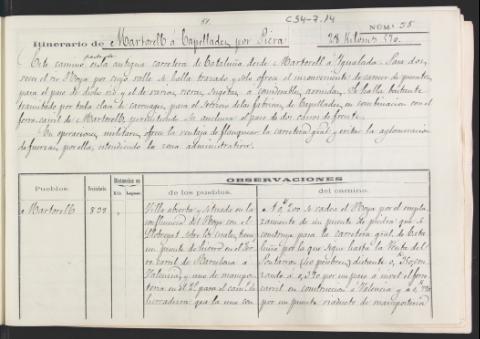 51.
C34-7.14
NÚM.º 58
Itinerario de Martorell á Capellades, por Piera.
28 Kilom.s 570.
Este camino es la antigua carretera de Cataluña desde Martorell á Igualada.
con el rio Noya por cuyo valle se halla trazado y solo ofrece el inconveniente de carecer de puentes,
para el paso de dicho rio y el de varias rieras, sugetas á considerables avenidas. Se halla bastante
transitado por toda clase de carruages, para el servicio de las fábricas de Capellades, en combinacion con el
ferro-carril de Martorell, permitiendo su anchura el paso de dos carros de frente.
En operaciones militares, ofrece la ventaja de flanquear la carretera gral. y evitar la aglomeracion
de fuerzas por ella, estendiendo la zona administrativa.
Pueblos.
Vecindario
Distancias en
Kil.s Leguas
OBSERVACIONES
de los pueblos.
del camino.
Martorell
838
"
Villa abierta y situada en la
confluencia del Noya con el
Llobregat, sobre los cuales tiene
un puente de hierro en el fer-
ro-carril de Barcelona á
Valencia, y uno de mampos-
teria en el 2.º para el cami.º de
herradura que la une con
A 0,k200 se vadea el Noya por el empla-
zamiento de un puente de piedra que se
construye para la carretera gral. de Cata-
luña por la que sigue hasta la Venta del
cru-
zando á 0,390 por un paso á nivel el ferro-
carril en construccion á Valencia y á
por un puente viaducto de mamposteria